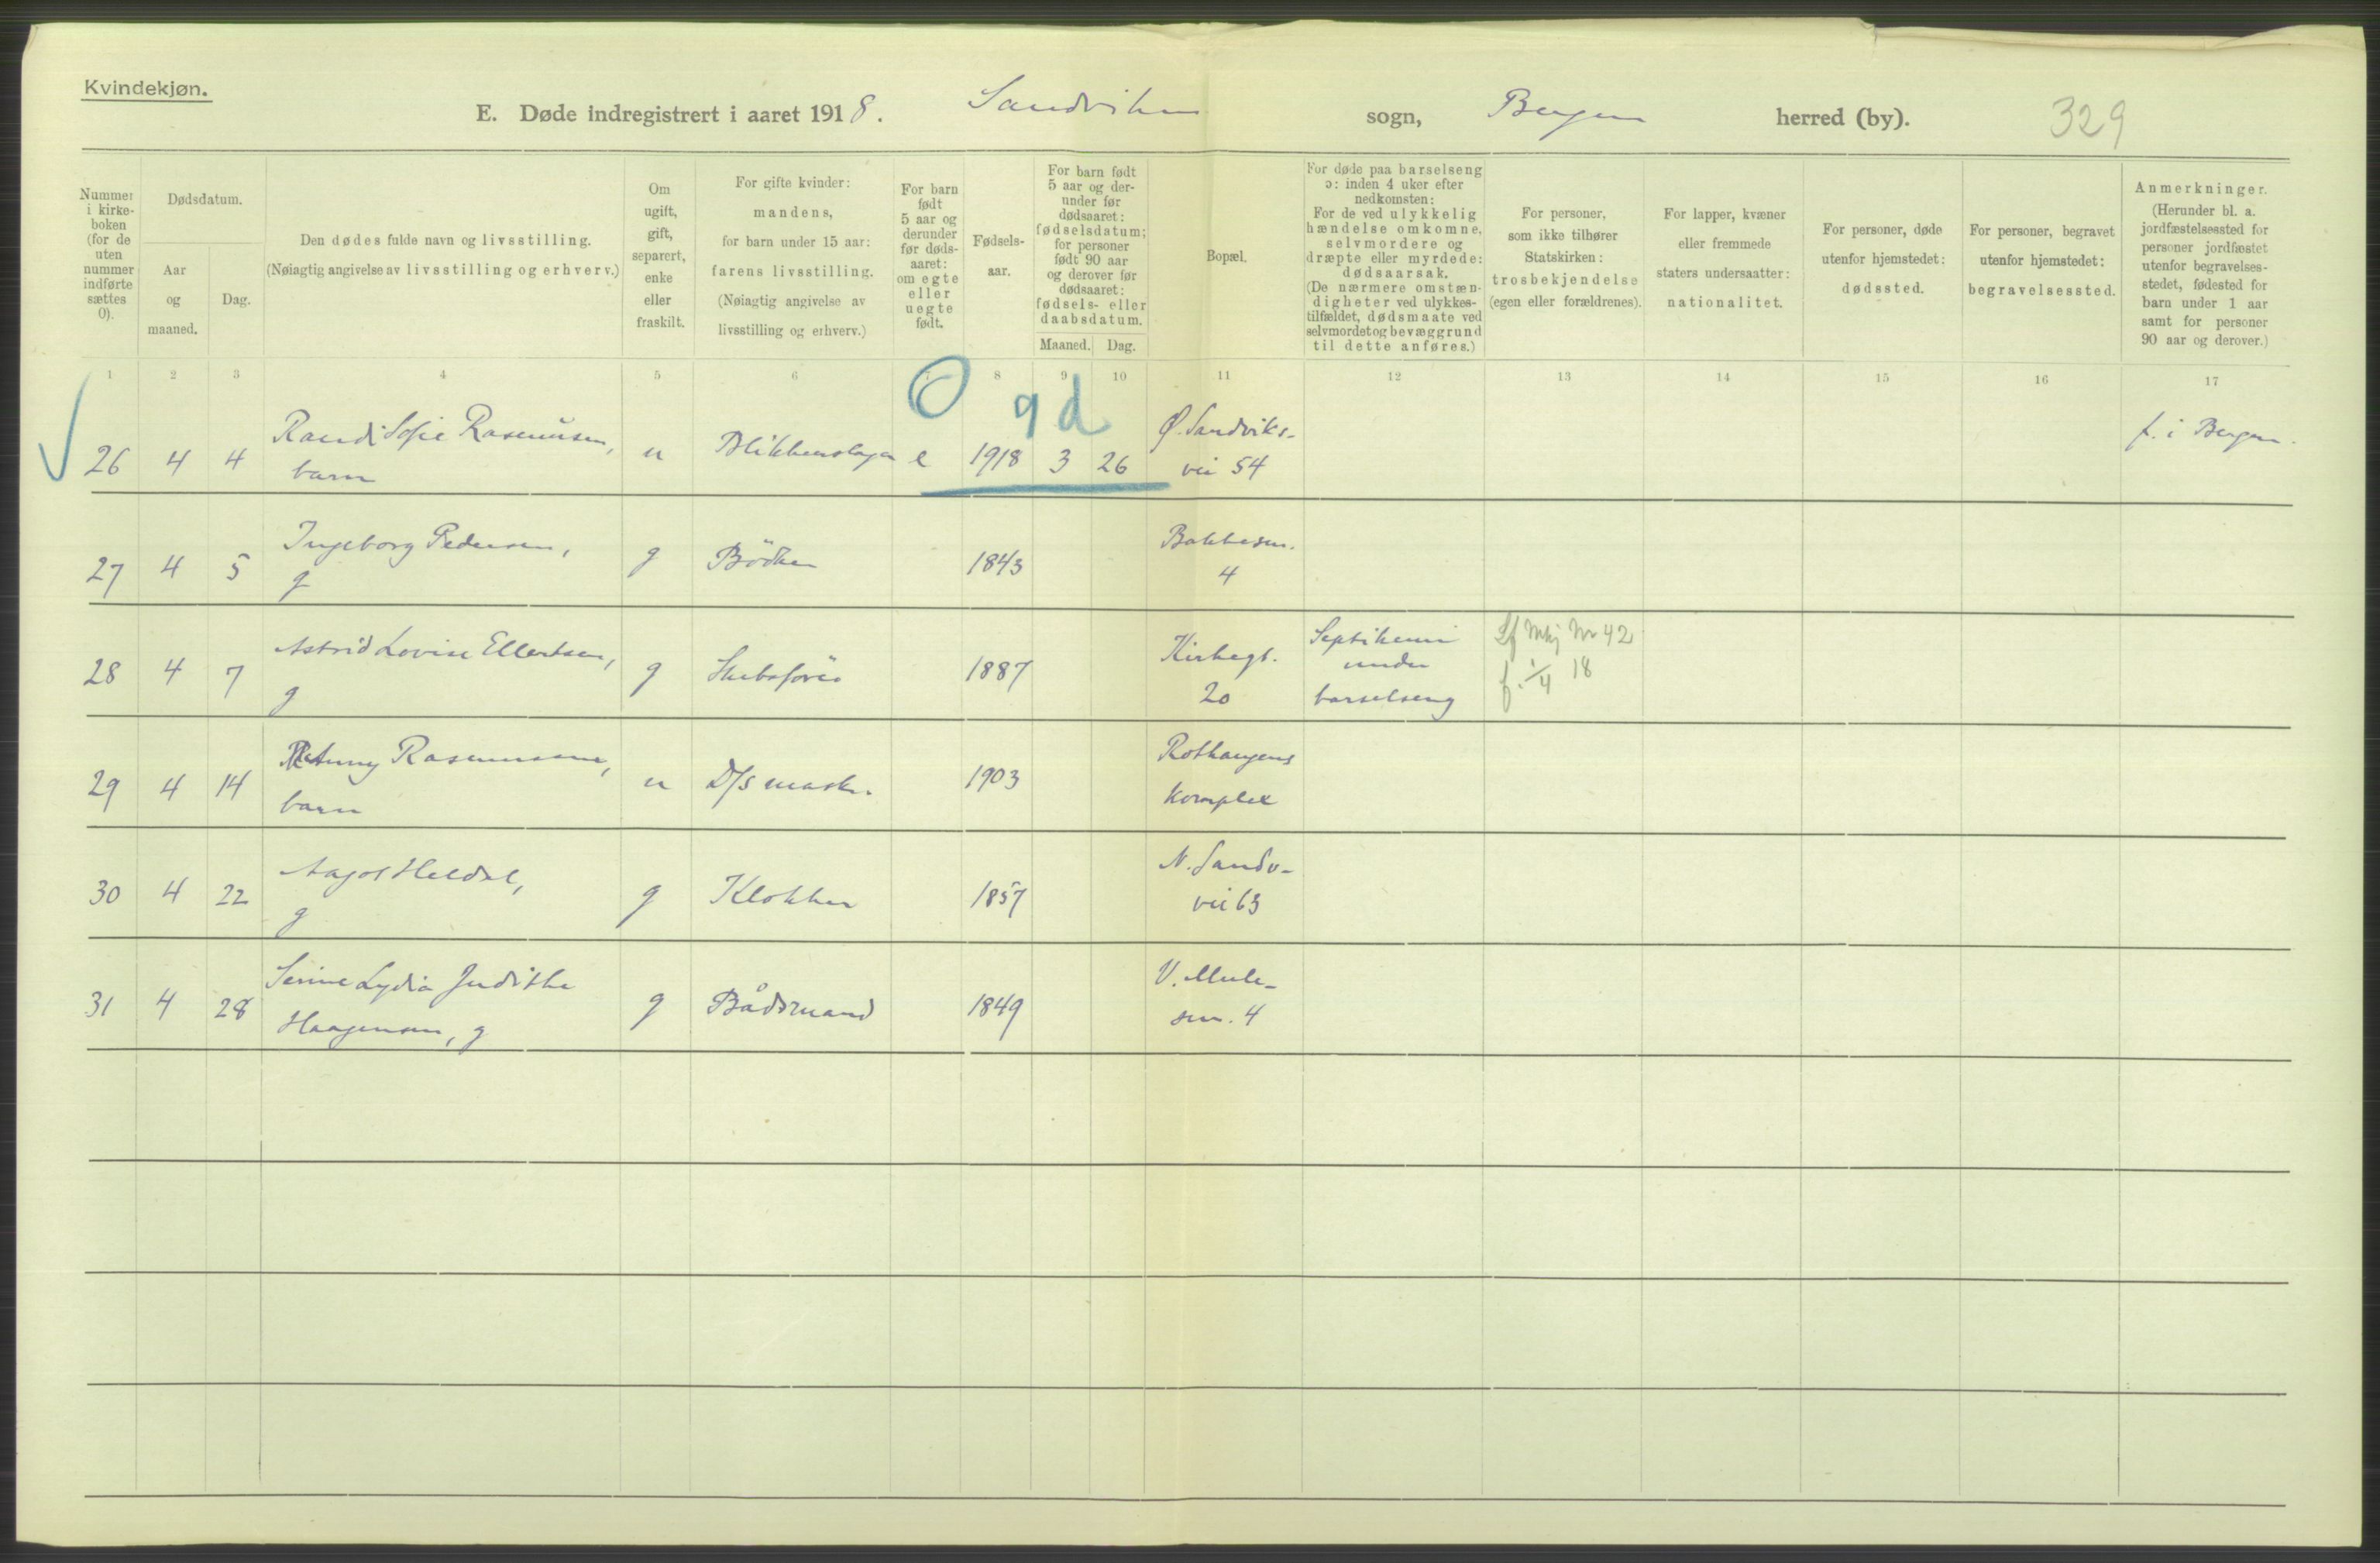 Kvindekjøn.
E. Døde indregistrert i aaret 1918. Sandviken sogn, Bergen herred (by). 329
Nummer i kirke- boken (for de uten nummer indførte sættes 0).
Dødsdatum.
Aar og maaned.
Dag.
Den dødes fulde navn og livsstilling.
(Nøiagtig angivelse av livsstilling og erhverv.)
Om ugift, gift, separert, enke eller fraskilt.
For gifte kvinder: mandens, for barn under 15 aar: farens livsstilling. (Nøiagtig angivelse av livsstilling og erhverv.)
For barn født 5 aar og derunder før døds- aaret: om egte eller uegte født.
Fødsels- aar.
For barn født 5 aar og der- under før dødsaaret: fødselsdatum; for personer født 90 aar og derover før dødsaaret: fødsels- eller daabsdatum.
Maaned. Dag.
Bopæl.
For døde paa barselseng ɔ: inden 4 uker efter nedkomsten: For de ved ulykkelig hændelse omkomne, selvmordere og dræpte eller myrdede: dødsaarsak. (De nærmere omstæn- digheter ved ulykkes- tilfældet, dødsmaate ved selvmordet og bevæggrund til dette anføres.)
For personer, som ikke tilhører Statskirken: trosbekjendelse (egen eller forældrenes).
For lapper, kvæner eller fremmede staters undersaatter: nationalitet.
For personer, døde utenfor hjemstedet: dødssted.
For personer, begravet utenfor hjemstedet: begravelsessted.
Anmerkninger. (Herunder bl. a. jordfæstelsessted for personer jordfæstet utenfor begravelses- stedet, fødested for barn under 1 aar samt for personer 90 aar og derover.)
1 2 3 4 5 6 7 8 9 10 11 12 13 14 15 16 17
9 d
Randi Sofie Rasmussen, Ø. Sandviks- f. i Bergen.
26 4 4 barn u Blikkenslager e 1918 3 26 vei 54
Ingeborg Pedersen, Bakkesm.
27 4 5 g g Bödker 1843 4
Astrid Lovise Ellertsen, Kirkegt. Septikemi under barselseng
28 4 7 g g Skibsförer 1887 20 Nr 42 f. 1/4 18
Anny Rasmussen, Rothaugens
29 4 14 barn u D/s mask. 1903 komplex
Aagot Heldal, N. Sandv-
30 4 22 g g Klokker 1857 vei 63
Serine Lydia Judithe V. Mule-
31 4 28 Haagensen, g g Bådsmand 1849 sm. 4